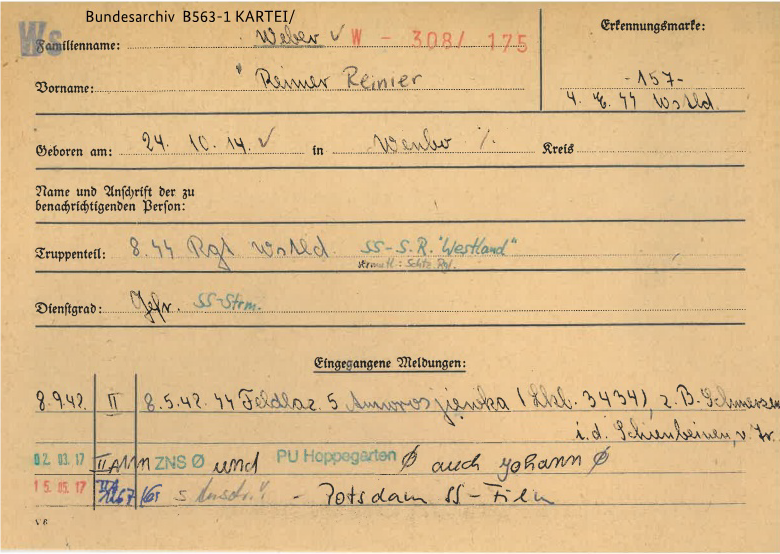 Bundesarchiv B563-1 KARTEI/
Ws
Familienname: Weber W - 308/ 175
Erkennungsmarke:
Vorname: Reimer Reinier
-157-
4. E. SS Wstld.
Geboren am: 24. 10. 14. in Wenbo ./. Kreis
Name und Anschrift der zu
benachrichtigenden Person:
Truppenteil: 8. SS Rgt Wstld SS-S.R. "Westland"
vermutl: Schtz. Rgt.
Dienstgrad: Gefr. SS-Strm.
Eingegangene Meldungen:
8.942. II 8.5.42. SS Feldlaz. 5 (Lkl. 3434), z. B. Schmerzen
i. d. Schienbeinen, v. Tr.
02. 03. 17 ZNS Ø und PU Hoppegarten Ø auch Johann Ø
15. 05. 17 - Potsdam SS-Film